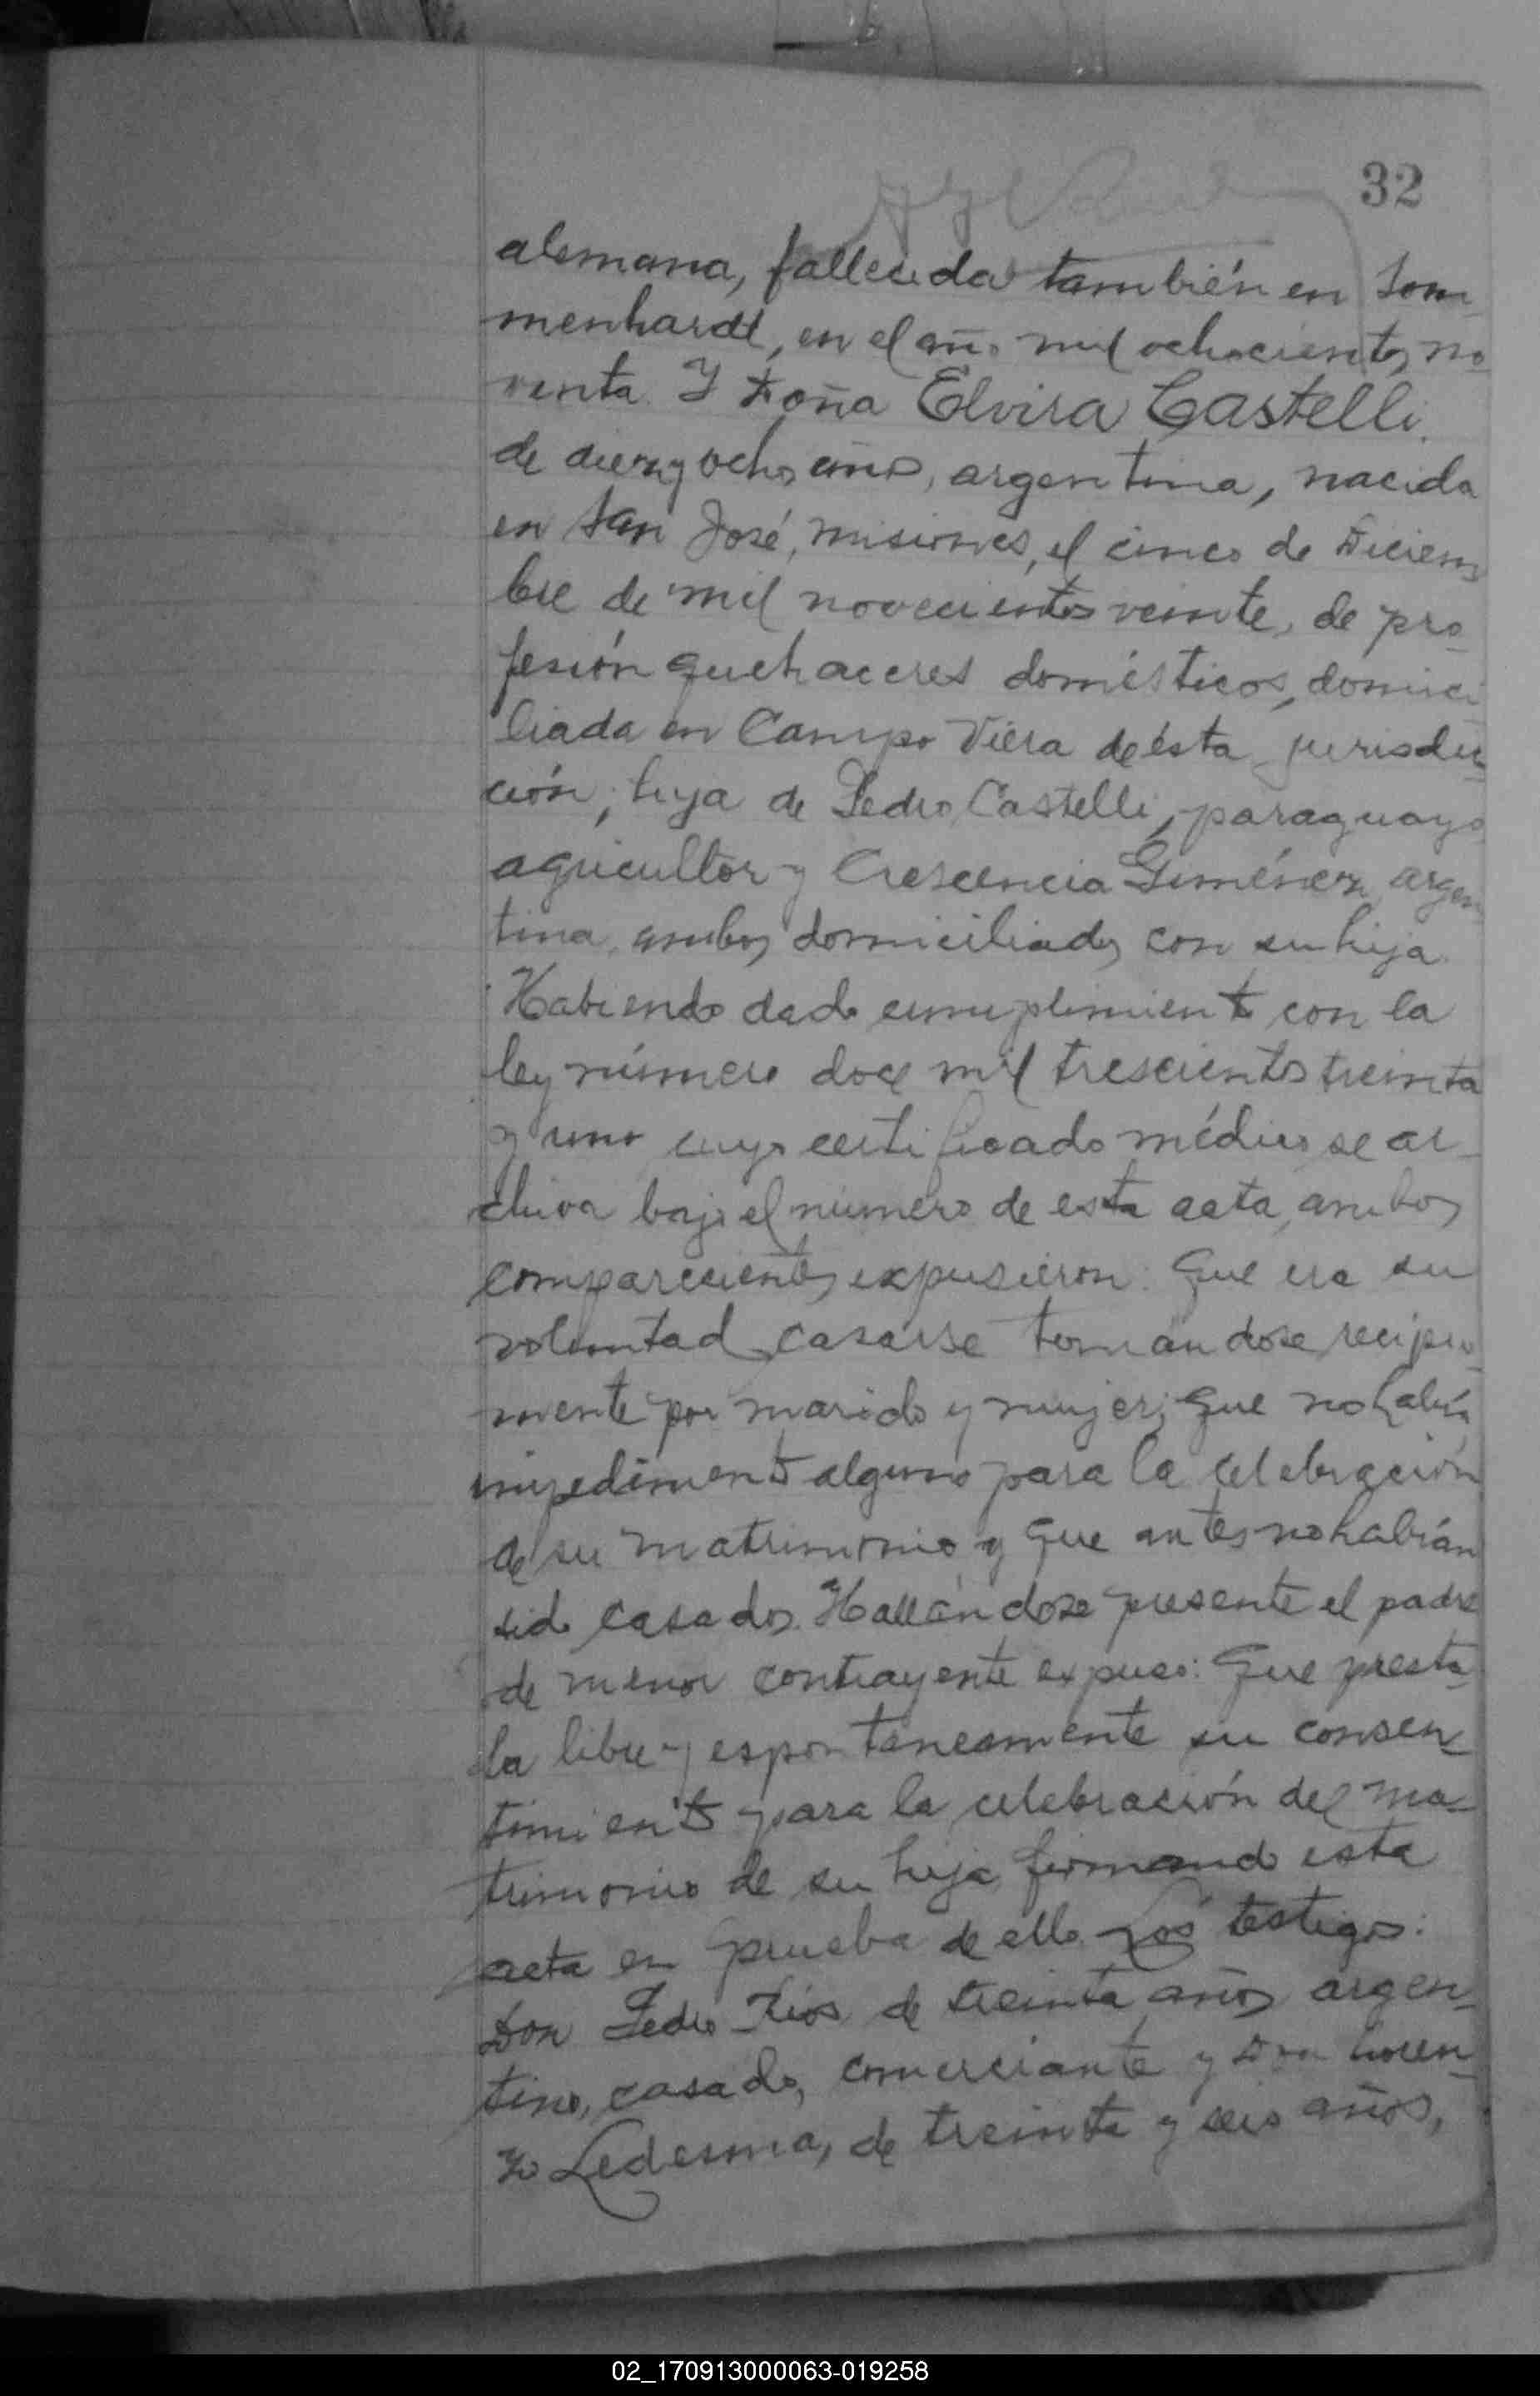 32
alemana, fallecida también en Som
menhardt, en el año mil ochocientos no
venta. Y Doña Elvira Castelli.
de diez y ocho años, argentina, nacida
en San José, misiones, el cinco de Diciem
bre de mil novecientos veinte, de pro
fesión quehaceres domésticos, domici
liada en Campo Viera de ésta jurisdic
ción; hija de Pedro Castelli, paraguayo
agricultor y Crescencia Giménez, argen
tina, ambos domiciliados con su hija.
Habiendo dado cumplimiento con la
ley número doce mil trescientos treinta
y uno cuyo certificado médico se ar
chiva bajo el número de esta acta, ambos
comparecientes expusieron: Que era su
voluntad casarse tomándose recipro
mente por marido y mujer; que no había
impedimento alguno para la celebración
de su matrimonio y que antes no habían
sido casados. Hallándose presente el padre
de menor contrayente expuso: Que presta
ba libre y espontáneamente su consen
timiento para la celebración del ma
trimonio de su hija firmando esta
acta en prueba de ello. Los testigos:
Don Pedro Rios de treinta años argen
tino, casado, comerciante y Don Loren
zo Ledesma, de treinta y seis años,
02_170913000063-019258